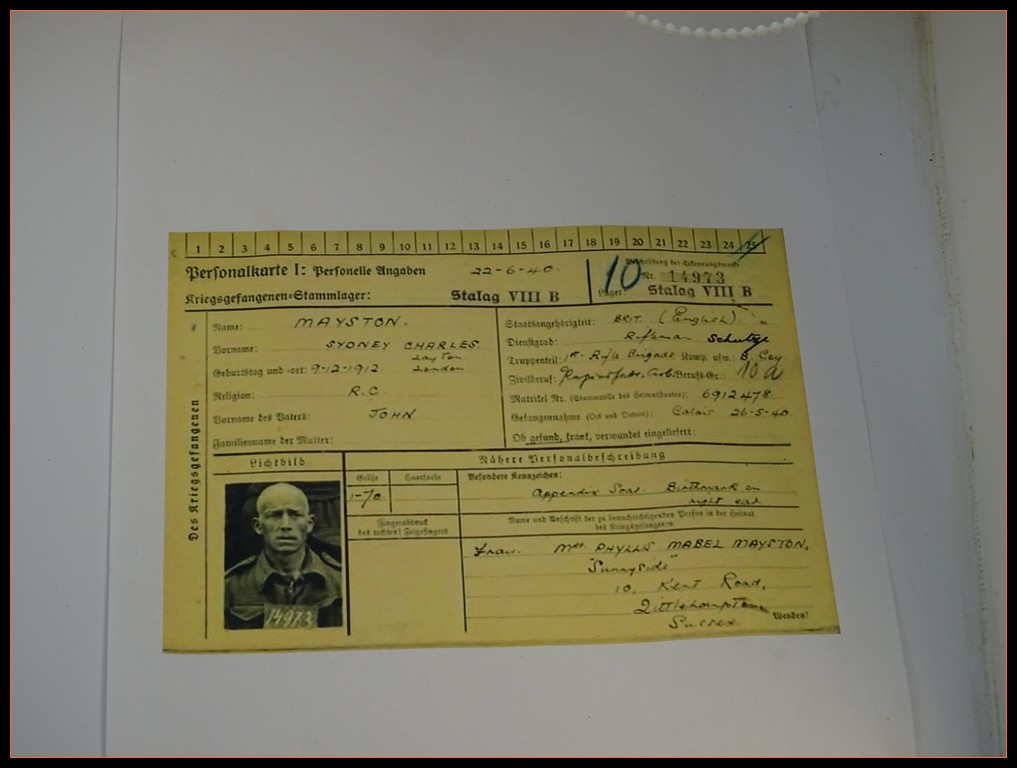 1 2 3 4 5 6 7 8 9 10 11 12 13 14 15 16 17 18 19 20 21 22 23 24 25
Personalkarte I: Personelle Angaben 22-6-40
Kriegsgefangenen-Stammlager: Stalag VIII B
10
Beschriftung der Erkennungsmarke
Nr. 14973
Lager: Stalag VIII B
Des Kriegsgefangenen
Name: MAYSTON.
Vorname: SYDNEY CHARLES
Geburtstag und -ort: 9-12-1912 Layton London
Religion: R.C.
Vorname des Vaters: JOHN
Familienname der Mutter:
Staatsangehörigkeit: BRIT. (English)
Dienstgrad: Rifleman Schutze
Truppenteil: 1st Rifle Brigade Komp. usw. B Coy
Zivilberuf: Beruf-Gr.: 10a
Matrikel Nr. (Stammrolle des Heimatstaates): 6912478
Gefangennahme (Ort und Datum): Calais 26-5-40.
Ob gesund, krank, verwundet eingeliefert:
Lichtbild
14973
Nähere Personalbeschreibung
Größe Haarfarbe
1-70
Besondere Kennzeichen:
Appendix Scar. Birthmark on
right ear
Fingerabdruck
des rechten! Zeigefingers
Name und Anschrift der zu benachrichtigenden Person in der Heimat
des Kriegsgefangenen
Frau. Mrs. PHYLLIS MABEL MAYSTON,
"Sunnyside"
10, Kent Road,
Littlehampton
Sussex.
Wenden!